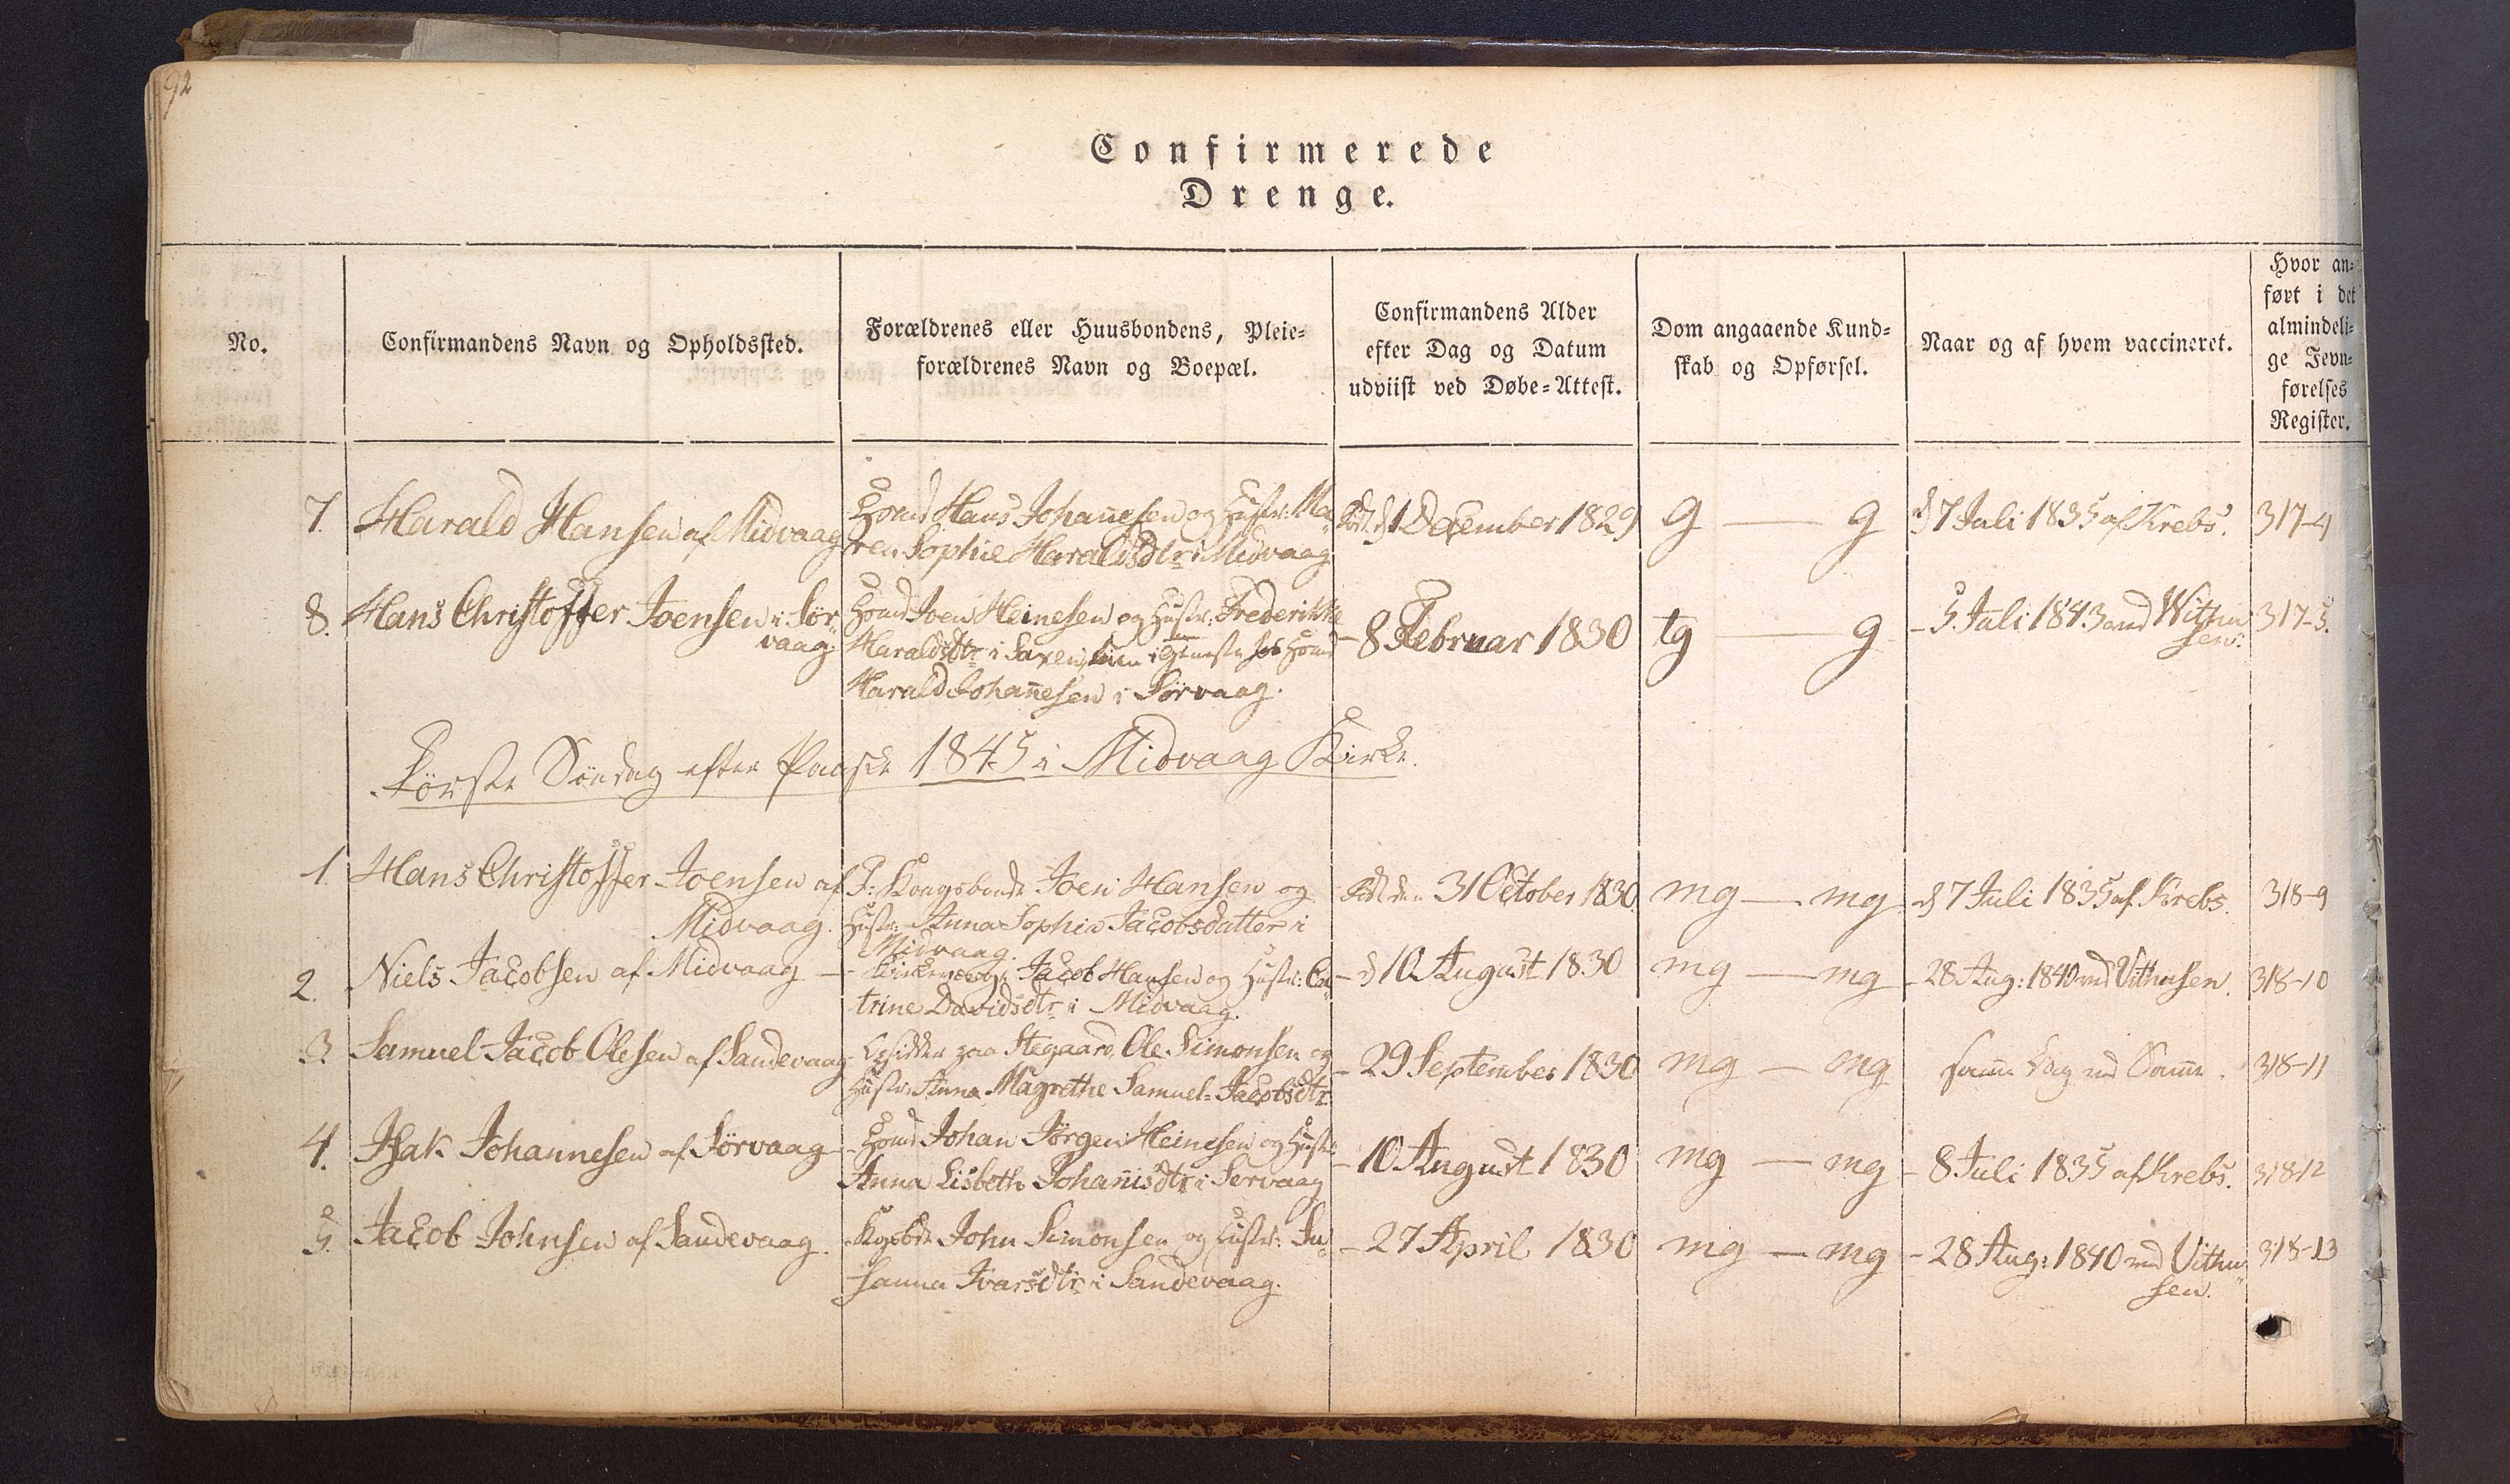 92
Confirmerede
Drenge.
No.
Confirmandens Navn og Opholdssted.
Forældrenes eller Huusbondens, Pleie-
forældrenes Navn og Boepæl.
Confirmandens Alder
efter Dag og Datum
udviist ved Døbe-Attest.
Dom angaaende Kund-
skab og Opførsel.
Naar og af hvem vaccineret.
Hvor an-
ført i det
almindeli-
ge Jevn-
førelses
Register.
7. Harald Hansen af Midvaag
Hans Johannesen og Hustr: Ma-
ren Sophie Haraldsdtr i Midvaag
Født d 1 December 1829
g — g
d 7 Juli 1835 af Krebs.
317-4
8. Hans Christoffer Joensen i Sør-
vaag.
Joen Heinesen og Hustr: Frederikke
Haraldsdtr i i Tjeneste hos
Harald Johannesen i Sörvaag.
- 8 Februar 1830
tg — g
- 5 Juli 1843 ved Withu
sen.
317-5.
Förste Söndag efter Paaske 1845 i Midvaag Kirke.
1. Hans Christoffer Joensen af
Midvaag.
F: Kongsbonde Joen Hansen og
Hustr: Anna Sophia Jacobsdatter i
Midvaag.
Født den 31 October 1830.
mg — mg
d 7 Juli 1835 af Krebs.
318-9
2. Niels Jacobsen af Midvaag —
- Jacob Hansen og Hustr: Ca-
trine Davidsdtr i Midvaag.
- d 10 August 1830
mg — mg
- 28 Aug: 1840 ved Vithusen.
318-10
3. Samuel Jacob Olesen af Sandevaag
- paa Stegaard, Ole Simonsen og
Hustr: Anna Magrethe Samuel-Jacobsdtr.
- 29 September 1830
mg — mg
samme Dag ved Samme.
318-11
4. Isak Johannesen af Sörvaag
- Johan Jörgen Heinesen og Hustr:
Anna Lisbeth Johannisdtr i Servaag
- 10 August 1830
mg — mg
- 8 Juli 1835 af Krebs.
318-12
5. Jacob Johnsen af Sandevaag.
- Kgsbde John Simonsen og Hustr: Su-
sanna Ivarsdtr i Sandevaag.
- 27 April 1830
mg — mg
- 28 Aug: 1840 ved Vithu
sen.
318-13